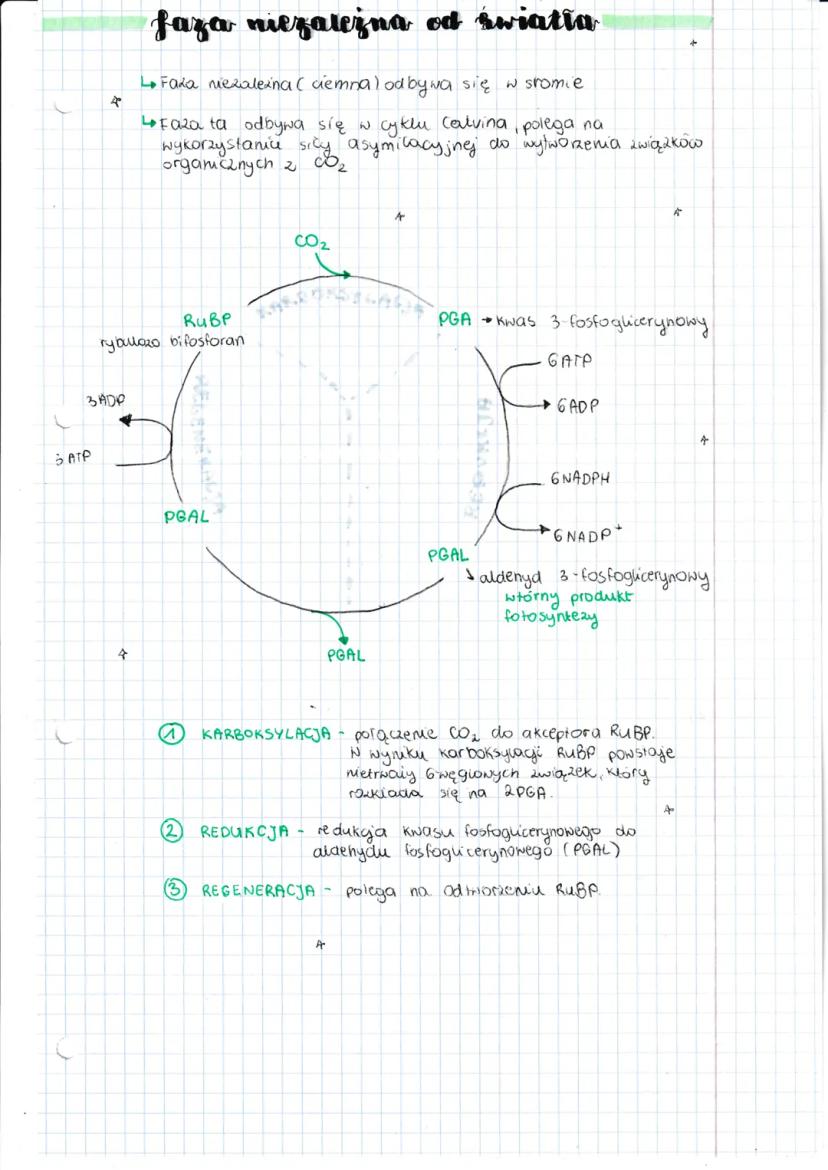 faza niezależna od światła
↳ Faza niezależna (ciemna) odbywa się w sromie
↳ Faza ta odbywa się w cyklu Calvina, polega na
wykorzystaniu siły asymilacyjnej do wytworzenia związków
organicznych z CO₂
CO₂
KARBOKSYLACJA
RuBP
rybulozo bifosforan
PGA → kwas 3-fosfoglicerynowy
6ATP
6ADP
3ADP
3ATP
REGENERACJA
REDUKCJA
6NADPH
6NADP⁺
PGAL
PGAL
↘ aldehyd 3-fosfoglicerynowy
wtórny produkt
fotosyntezy
PGAL
① KARBOKSYLACJA - połączenie CO₂ do akceptora RuBP.
W wyniku karboksylacji RuBP powstaje
nietrwały 6węglowych związek, który
rozkłada się na 2PGA.
② REDUKCJA - redukcja kwasu fosfoglicerynowego do
aldehydu fosfoglicerynowego (PGAL)
③ REGENERACJA - polega na odtworzeniu RuBP.